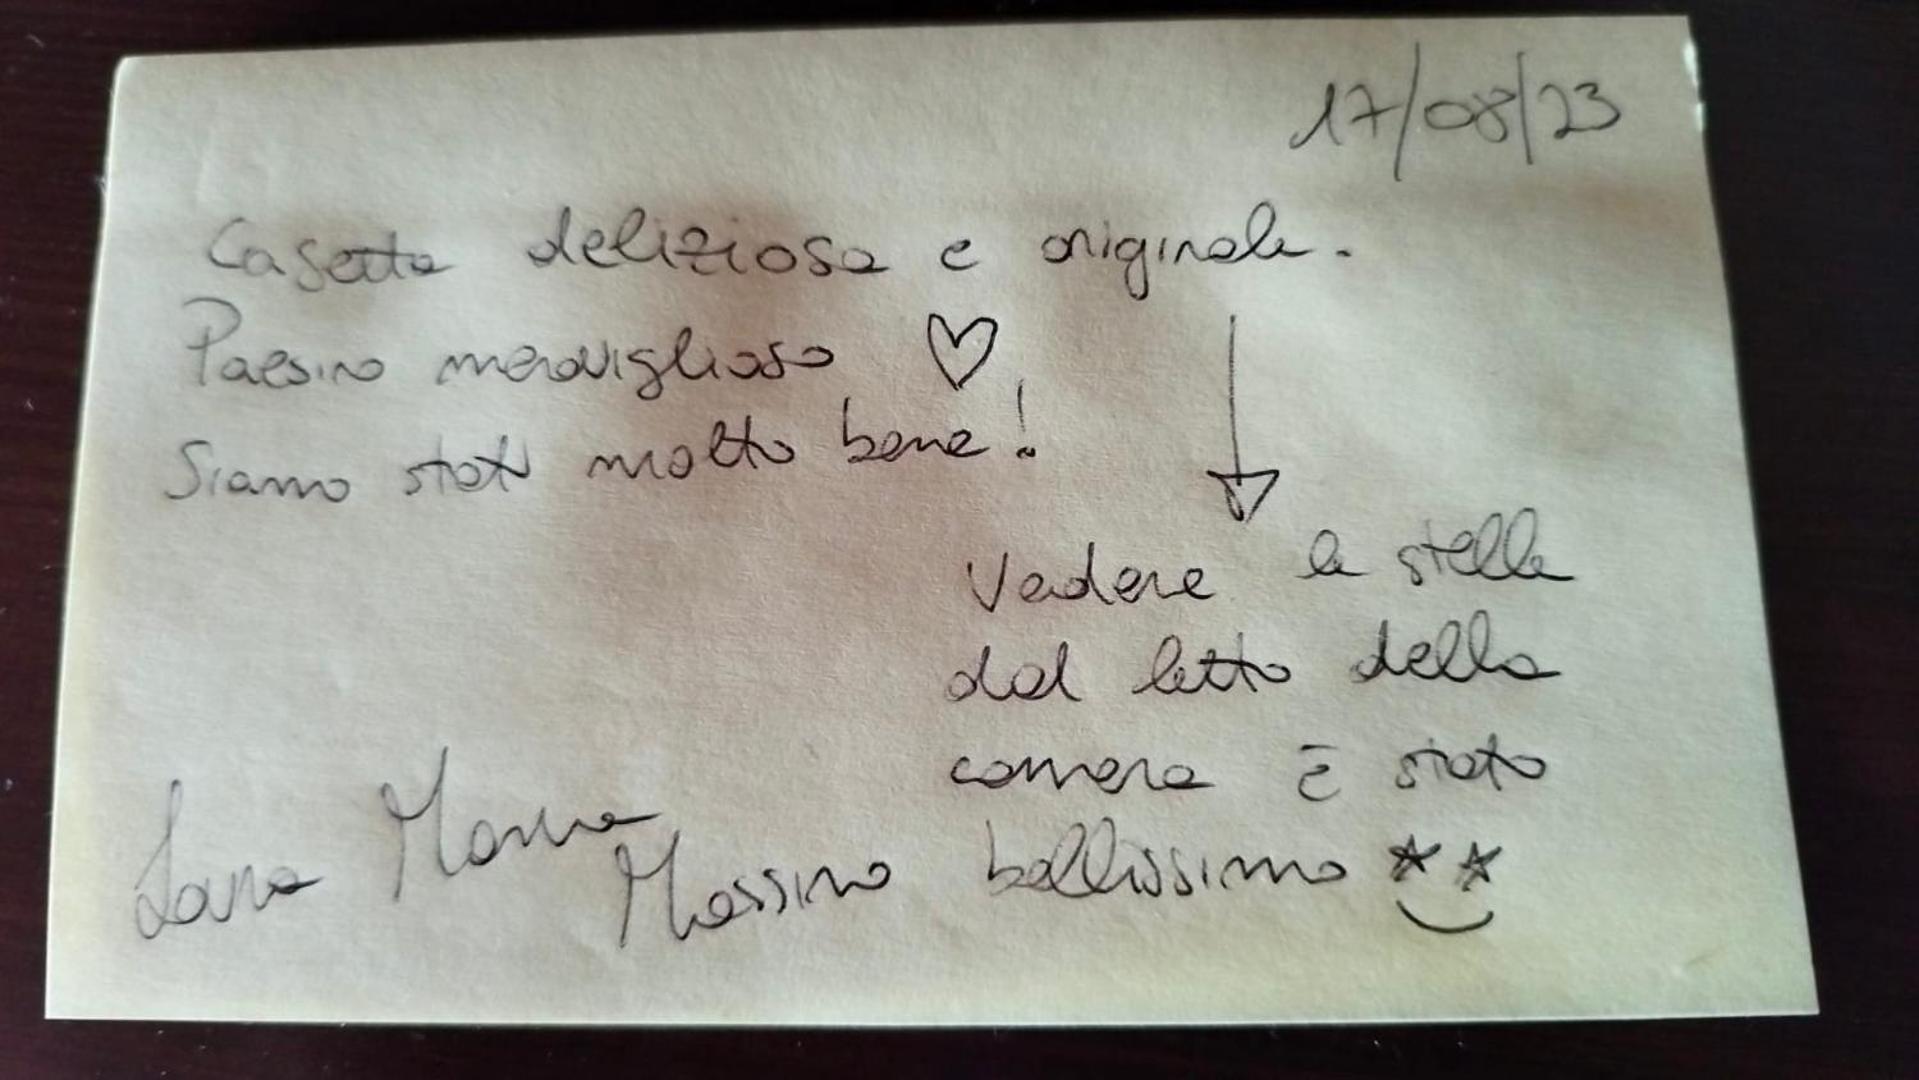 17/08/23
Casetta deliziosa e originale.
Paesino meraviglioso ♡
Siamo stati molto bene!
Vedere le stelle
dal letto della
camera è stato
bellissimo
Massimo